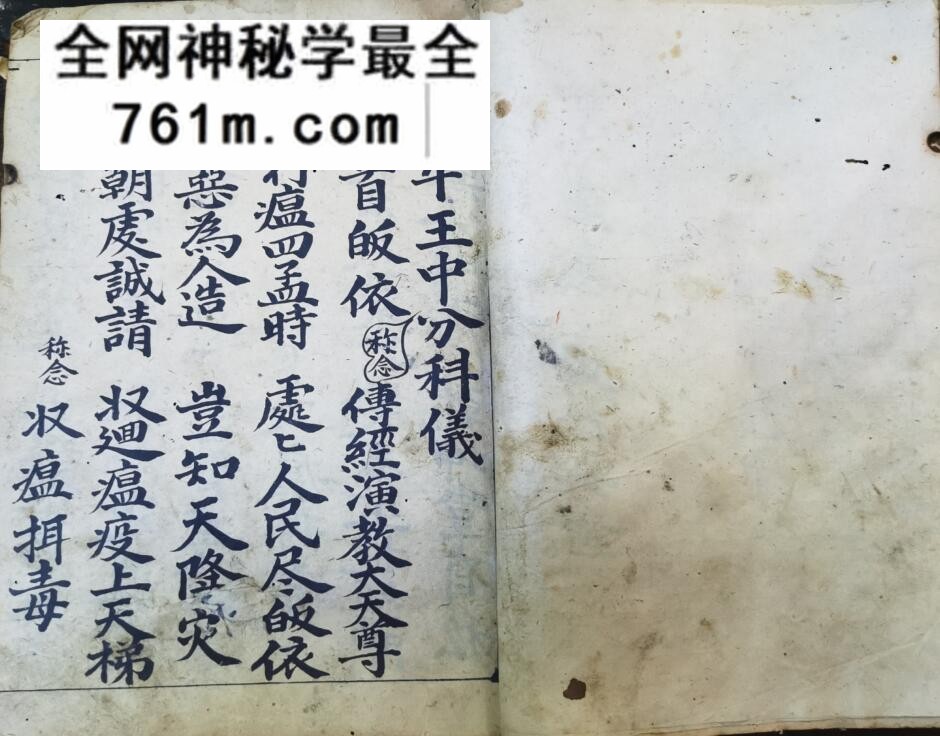 全网神秘学最全
761m.com
年王中分科儀
首皈依 称念 傳經演教大天尊
行瘟四孟時 處匕人民尽皈依
惡為人造 豈知天降灾
朝虔誠請 収廻瘟疫上天梯
称念 収瘟摂毒